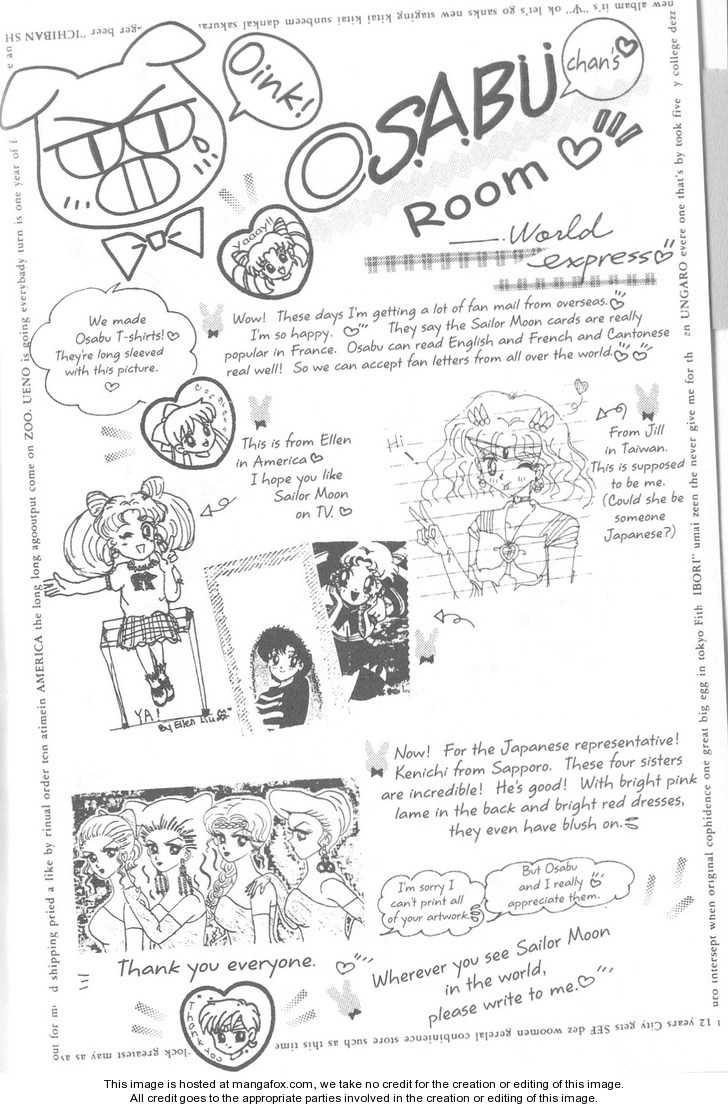 Oink!
OSABU
chan's
Room
World
express
Yaaay!!
We made
Osabu T-shirts!
They're long sleeved
with this picture.
Wow! These days I'm getting a lot of fan mail from overseas.
I'm so happy. They say the Sailor Moon cards are really
popular in France. Osabu can read English and French and Cantonese
real well! So we can accept fan letters from all over the world.
This is from Ellen
in America
I hope you like
Sailor Moon
on TV.
Hi
From Jill
in Taiwan.
This is supposed
to be me.
(Could she be
someone
Japanese?)
YA!
By Ellen Liu
Now! For the Japanese representative!
Kenichi from Sapporo. These four sisters
are incredible! He's good! With bright pink
lame in the back and bright red dresses,
they even have blush on.
I'm sorry I
can't print all
of your artwork.
But Osabu
and I really
appreciate them.
Thank you everyone.
Wherever you see Sailor Moon
in the world,
please write to me.
Thank you
new album it's "Ψ" ok let's go sanks new staging kitai kitai sunbeam dankai sakura
-ger beer "ICHIBAN SH
ZOO. UENO is going everybady turn is one year of
d shipping pried a like by rinual order ton atimein AMERICA the long long agooutput come on
y college dezz
UNGARO evere one that's by took five
IBORI" umai zeen the never give me for th
uro intersept when original cophidence one great big egg in tokyo Fith
12 years City gets SEF dez woomen gerelal conbinience store such as this time
clock greatest may as as
out for
This image is hosted at mangafox.com, we take no credit for the creation or editing of this image.
All credit goes to the appropriate parties involved in the creation or editing of this image.